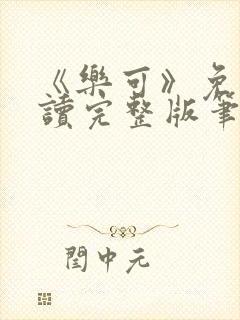 《樂可》免
讀完整版筆
閏中元